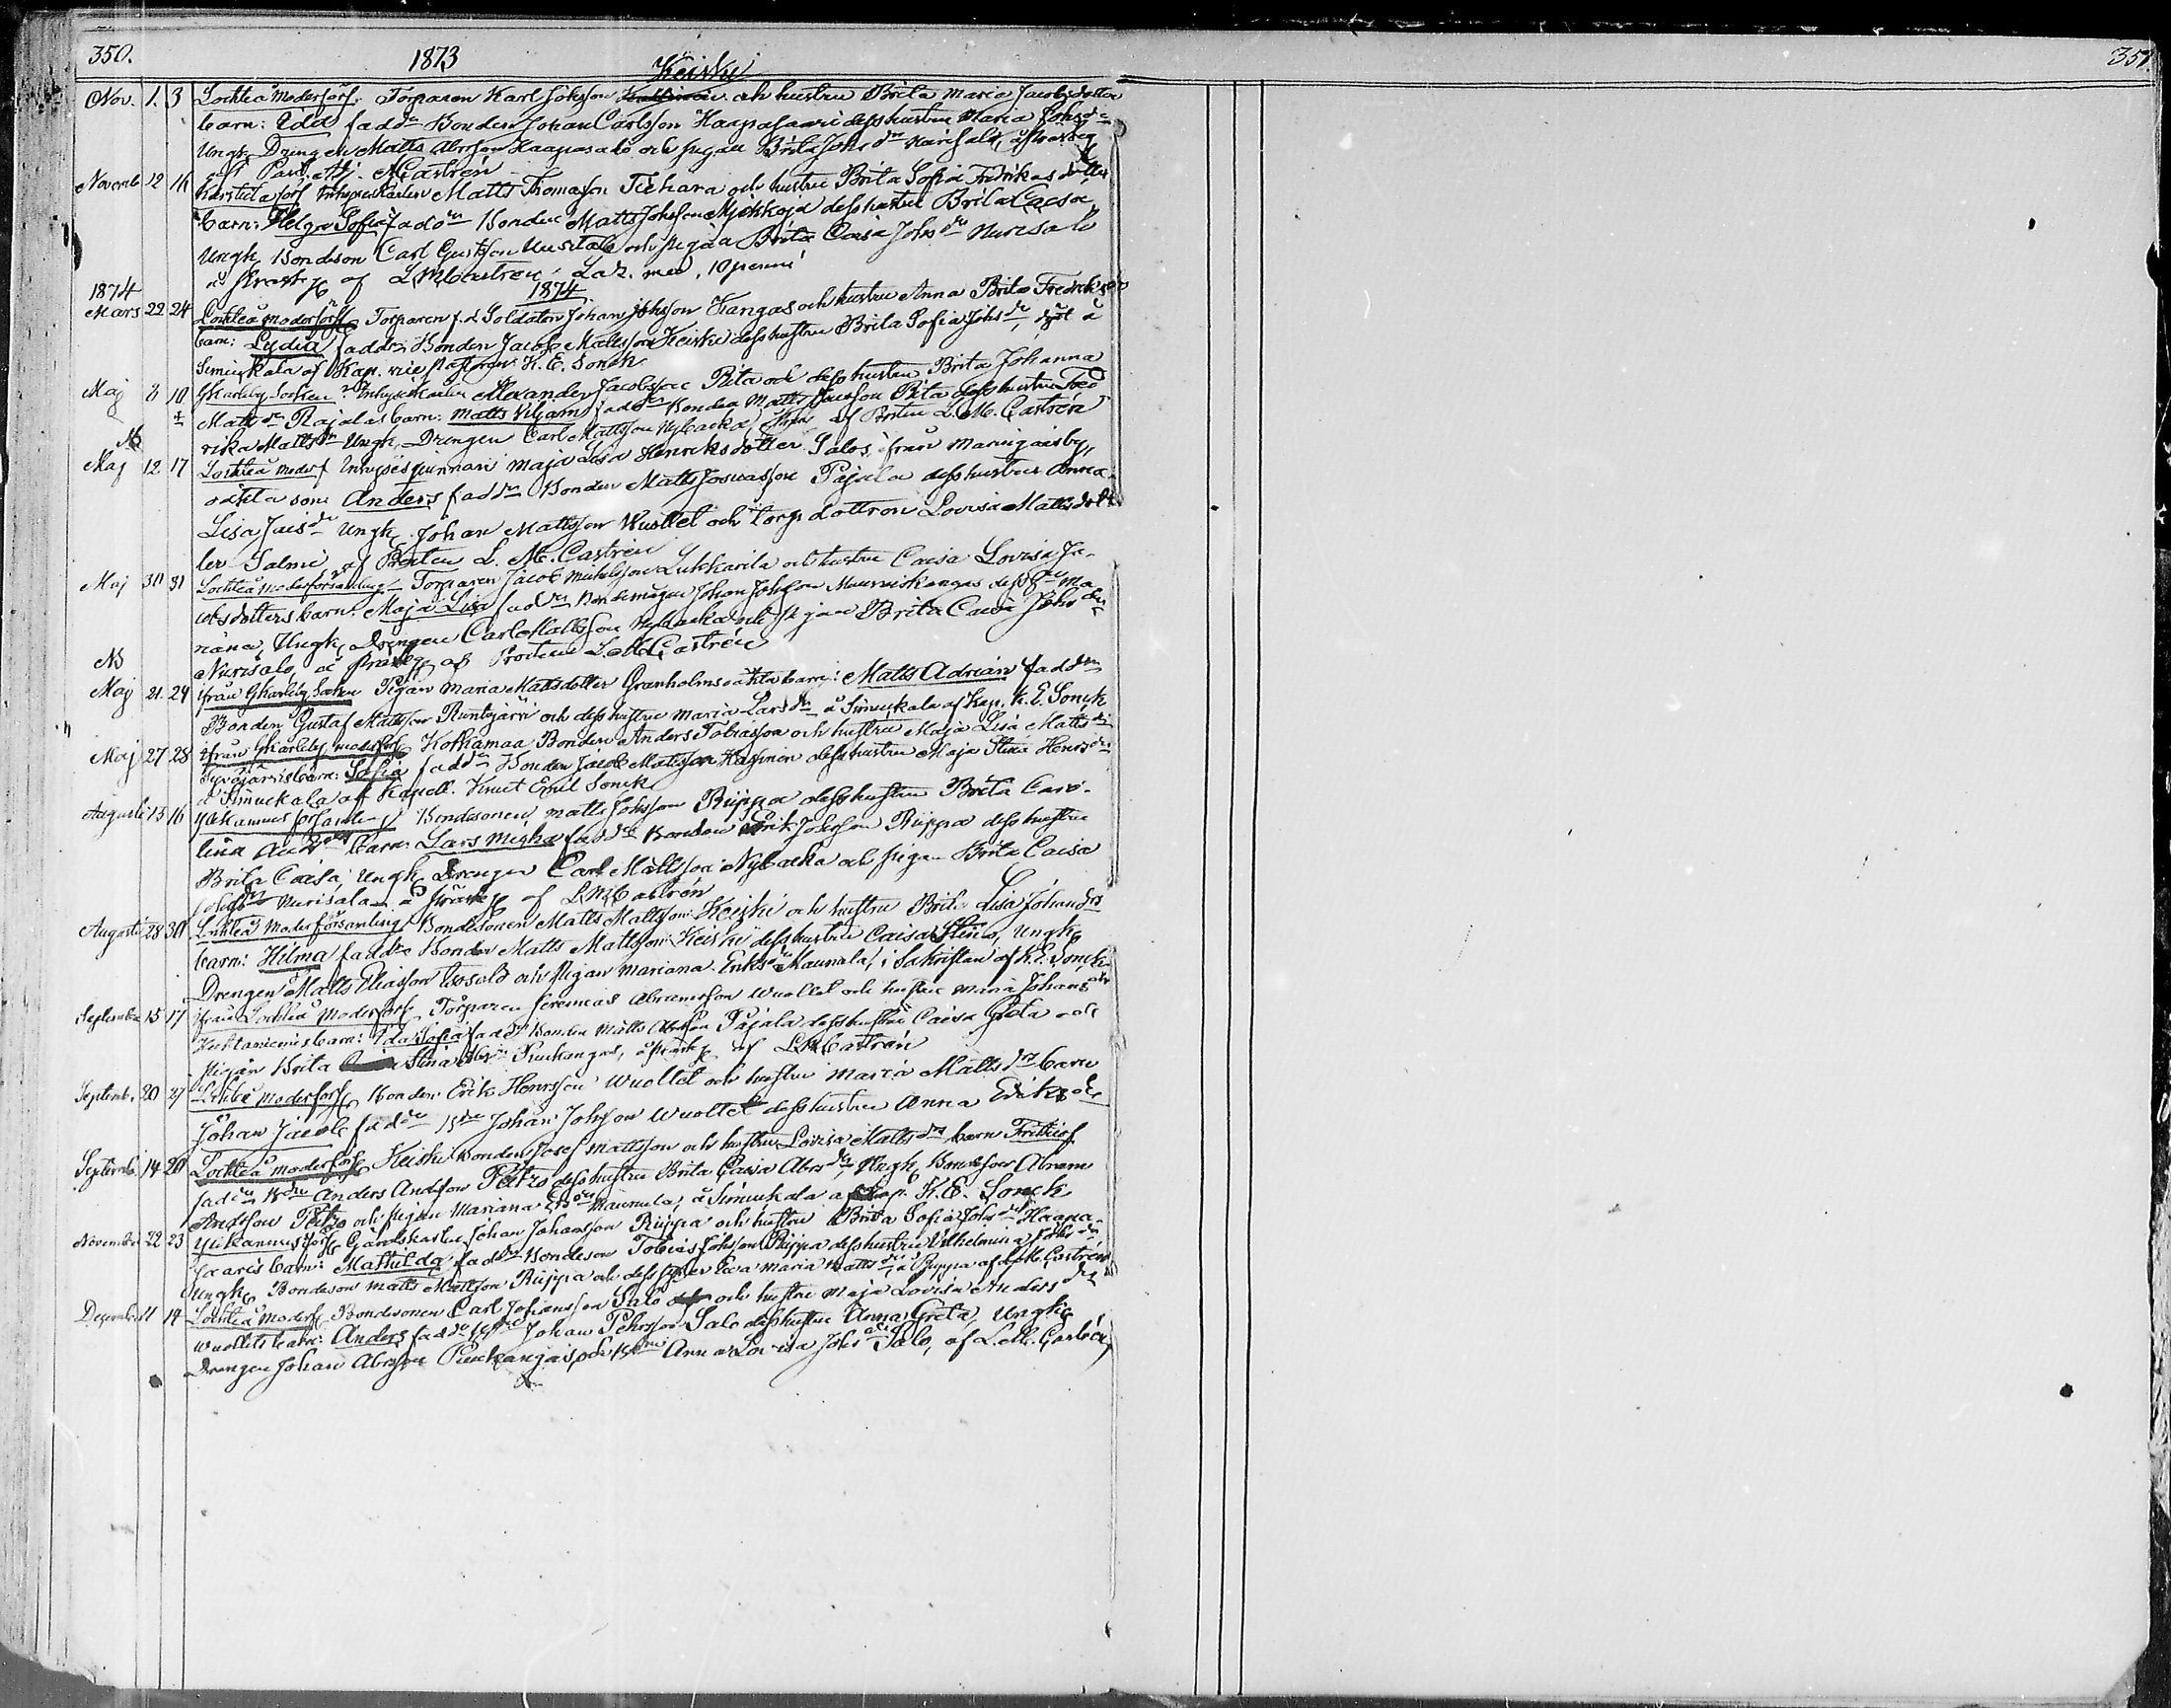 350.
1873
351.
Keisky
Nov. 1. 3 Lochteå Moderförs. Torparen Karl Johsson och hustru Brita Maria Jacobsdotter
barn: Ida faddr Bonden Johan Carlsson Haapasaari dess hustru Maria Johsdr
Ungk. Drengen Matts Abrsson Haapasalo och pigan Brita Johsdr Nurisalo, å Prästbg
af Past. Adj. Castrén
Novemb. 12 16 Karstula förs Inhyseskarlen Matts Thomasson Tiehara och hustru Brita Sofia Fredriksdotters
barn: Helga Sofia faddr Bonden Matts Johsson Djekkoja dess hustru Brita Caisa
Ungk Bondeson Carl Gustsson Uusitalo och pigan Brita Caisa Johsdr Nurisalo
å Prästg af L M Castrén. Laz. med. 10 penni
1874
1874
Mars 22 24 Lochteå moderförs Torparen f.d. Soldaten Johan Johsson Kangas och hustru Anna Brita Fredriksdrs
barn: Lydia faddr Bonden Jacob Mattsson Keiski dess hustru Brita Sofia Johsdr, döpt å
Simuckala af Kap. vice pastoren K. E. Sonck
Maj 3 10 GKarleby Socken Inhyseskarlen Alexander Jacobsson Rita och dess hustru Brita Johanna
Mattsdr Rajalas barn: Matts Viljam faddr Bonden Matts Rita dess hustru Fred
rika Mattsdr Ungk Drengen Carl Mattsson Nybacka af Prosten L. M. Castrén
NB
Maj 12 17 Lochteå Moderf Inhyses qvinnan Maja Lisa Henriksdotter Salos, från Maringaisby,
oäkta son Anders faddr Bonden Matts Josuasson Pajula dess hustru Anna
Lisa Jacsdr Ungk. Johan Mattsson Wuollet och torp. dottren Lovisa Mattsdot
ter Salmi, af Prosten L. M. Castrén
Maj 30 31 Lochteå moderförsamling Torparen Jacob Michelsson Lukkarila och hustru Caisa Lovisa Ja-
cobsdotters barn: Maja Lisa faddr Bondemågen Johan Johsson Muuriskangas dess hu Ma
riana, Ungk, Drengen Carl Mattsson Nybacka och pigan Brita Caisa Johsdr
Nurisalo, å Prästbg af Prosten L. M. Castrén
NB
Maj 21. 24 från GKarleby Socken Pigan Maria Mattsdotter Granholms oäkta barn: Matts Adrian faddr
Bonden Gustaf Mattsson Runtujärvi och dess hustru Maria Larsdr å Simuckala af Kap. K. E. Sonck
Maj 27 28 från GKarleby moderförs Kotkamaa Bonden Anders Tobiasson och hustru Maja Lisa Mattsdr
barn: Sofia faddr Bonden Jacob Mattsson Hassinen dess hustru Maja Stina Henrsdr
å Simuckala af Kapell. Knut Emil Sonck
Augusti 13 16 Yliskannus församling Bondesonen Matts Johsson Riippa dess hustru Brita Caro-
lina barn: Lars Micko faddr Bonden Erik Johsson Riippa dess hustru
Brita Caisa, Ungk Drengen Carl Mattsson Nybacka och pigan Brita Caisa
Johsdr Nurisalo å Prästg af L M Castrén
Augusti 28 30 Lochteå Moderförsamling Bondesonen Matts Mattsson Keiski och hustru Brita Lisa Johansdrs
barn: Hilma faddr Bonden Matts Mattsson Keiski dess hustru Caisa Stina, Ungk
Drengen Matts Eliasson och pigan Mariana Eriksdr Maunala, i Sakristian af K. E. Sonck
September 15 17 från Lochteå Moderförs Torparen Jeremias Abramsson Wuollet och hustru Maria Johansdtr
barn: Ida Sofia faddr Bonden Matts Abrsson Pajala dess hustru Caisa Greta och
pigan Brita Stina Abrdr Puukangas, å prästg af L M Castrén
Septemb. 20 27 Lochteå moderförs Bonden Erik Henrsson Wuollet och hustru Maria Mattsdrs barn
Johan Jacob faddr Bden Johan Johsson Wuollet dess hustru Anna Eriksdr
Septemb. 14 20 Lochteå moderförs Keiski bonden Josef Mattsson och hustru Lovisa Mattsdrs barn Frithiof
faddr Bden Anders Andsson Petzo dess hustru Brita Caisa Abrsdr, Ungk. Bondeson Abram
Andsson Petzo och pigan Mariana Ersdr Maunula, å Simuckala af Kap. K. E. Sonck
November 22 23 Yliskannus förs Gårdskarlen Johan Johansson Riippa och hustru Brita Sofia Johsdr Haapa-
saaris barn: Mathilda faddr Bondeson Tobias Johsson Riippa dess hustru Vilhelmina Johsdr
Ungk Bondeson Matts Mattsson Riippa och dess syster Eva Maria Mattsdr, å Riippa af L. M. Castrén
December 11 14 Lochteå Moderf Bondesonen Carl Johansson Salo och hustru Maja Lovisa Andersdrs
Wuollets barn: Anders faddr Bden Johan Pehrsson Salo dess hustru Anna Greta, Ungk
Drengen Johan Abrsson Puukangas och Anna Lovisa Johsdr Salo, af L. M. Castrén